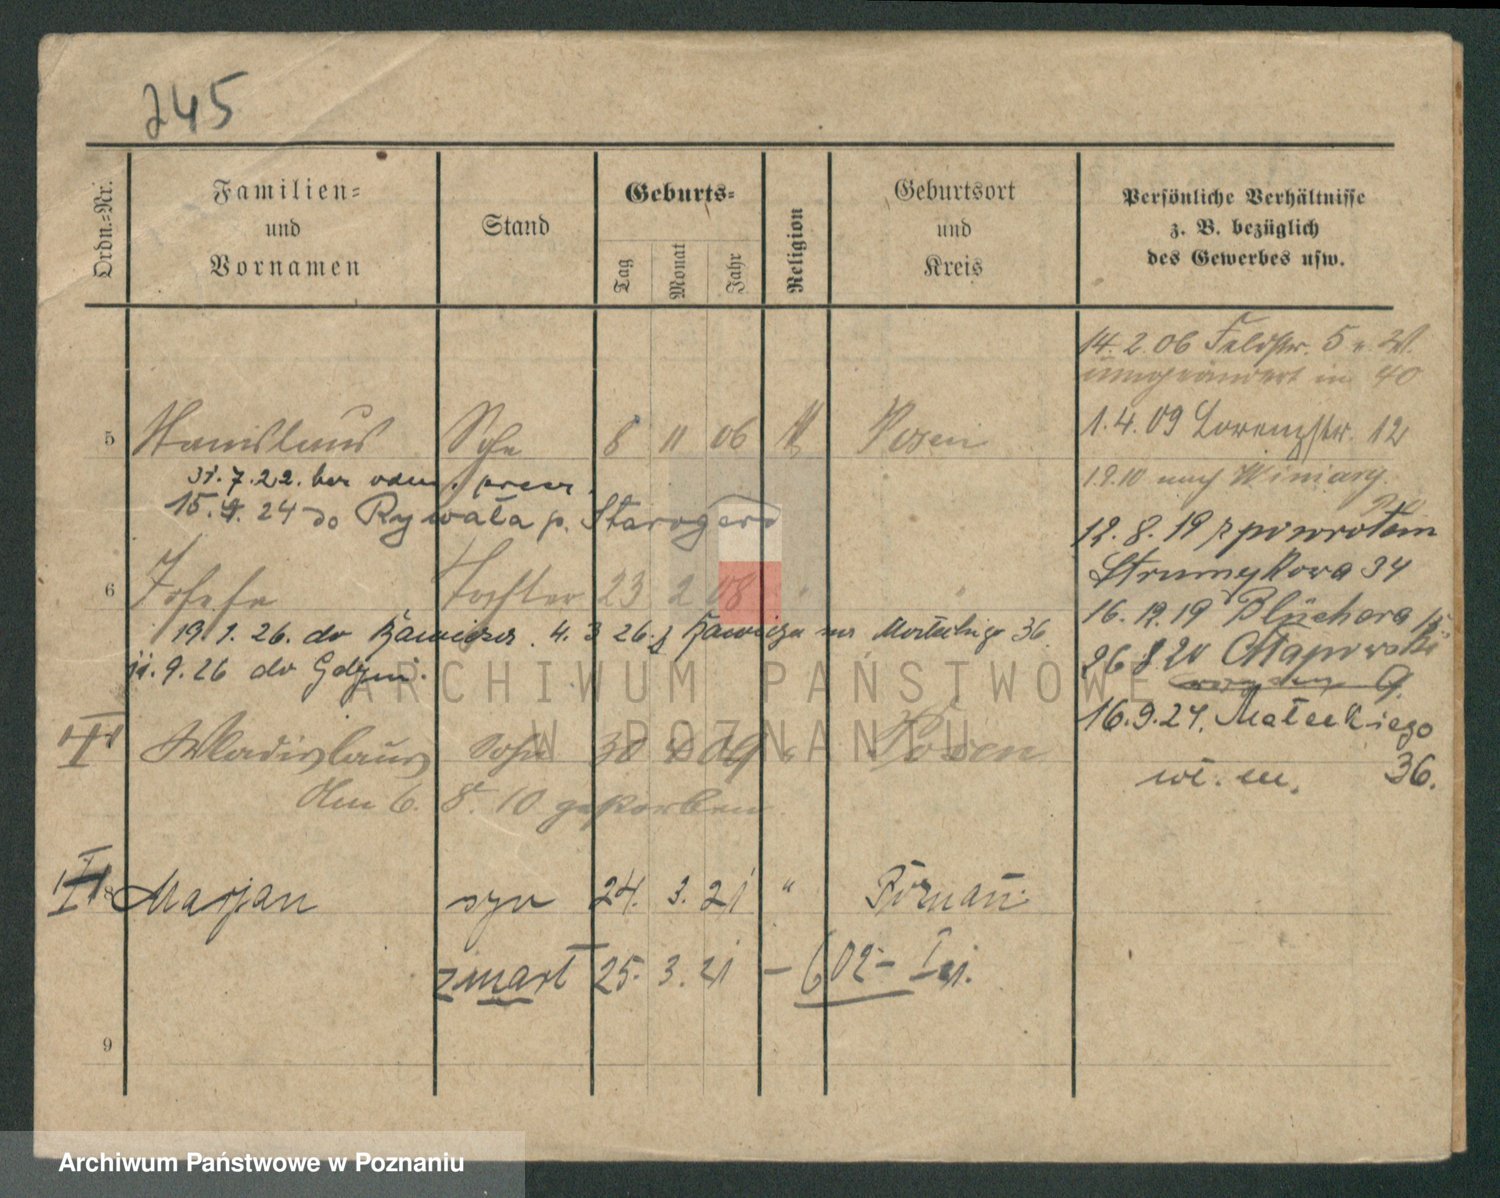 245
Ordn.-Nr.
Familien-
und
Vornamen
Stand
Geburts-
Tag
Monat
Jahr
Religion
Geburtsort
und
Kreis
Persönliche Verhältnisse
z. B. bezüglich
des Gewerbes usw.
14. 2. 06 Feldstr. 5
umgeändert in 40
5 Stanislaus Sohn 8 11 06 K Posen
1. 4. 09 Lorenzstr. 12
31. 7. 22.
nach Winiary
15. 24 do Rywała p. Starogard
12. 8. 19 z powrotem
Strumykowa 34
6 Josefa Tochter 23 2 08 "
16. 12. 19 Blüchera 15
19. 1. 26. do 4. 3 26. z 36
26 8 20
11. 9. 26 do Gdyni.
16. 9. 24. Małeckiego
36.
Wladislaus Sohn 30 09 " Posen
Am 6. 8. 10 gestorben
8 Marjan syn 24. 3. 21 " Poznań
zmarł 25. 3. 21 – 602 –
9
ARCHIWUM PAŃSTWOWE
W POZNANIU
Archiwum Państwowe w Poznaniu